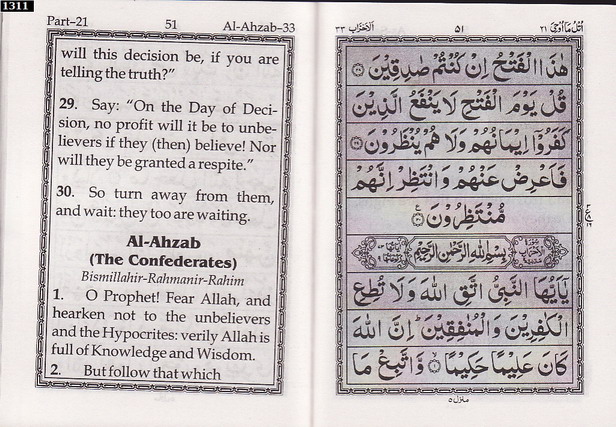 1311
Part–21 51 Al-Ahzab–33
will this decision be, if you are
telling the truth?”
29. Say: “On the Day of Deci-
sion, no profit will it be to unbe-
lievers if they (then) believe! Nor
will they be granted a respite.”
30. So turn away from them,
and wait: they too are waiting.
Al-Ahzab
(The Confederates)
Bismillahir-Rahmanir-Rahim
1. O Prophet! Fear Allah, and
hearken not to the unbelievers
and the Hypocrites: verily Allah is
full of Knowledge and Wisdom.
2. But follow that which
اتل ما اوحی ٢١ ٥١ الاحزاب ٣٣
هٰذَا الْفَتْحُ اِنْ كُنْتُمْ صٰدِقِيْنَ ٢٨
قُلْ يَوْمَ الْفَتْحِ لَا يَنْفَعُ الَّذِيْنَ
كَفَرُوْۤا اِيْمَانُهُمْ وَلَا هُمْ يُنْظَرُوْنَ ٢٩
فَاَعْرِضْ عَنْهُمْ وَانْتَظِرْ اِنَّهُمْ
مُّنْتَظِرُوْنَ
بِسْمِ اللّٰهِ الرَّحْمٰنِ الرَّحِيْمِ
يٰۤاَيُّهَا النَّبِيُّ اتَّقِ اللّٰهَ وَلَا تُطِعِ
الْكٰفِرِيْنَ وَالْمُنٰفِقِيْنَ ؕ اِنَّ اللّٰهَ
كَانَ عَلِيْمًا حَكِيْمًا ١ وَّاتَّبِعْ مَا
منزل ٥